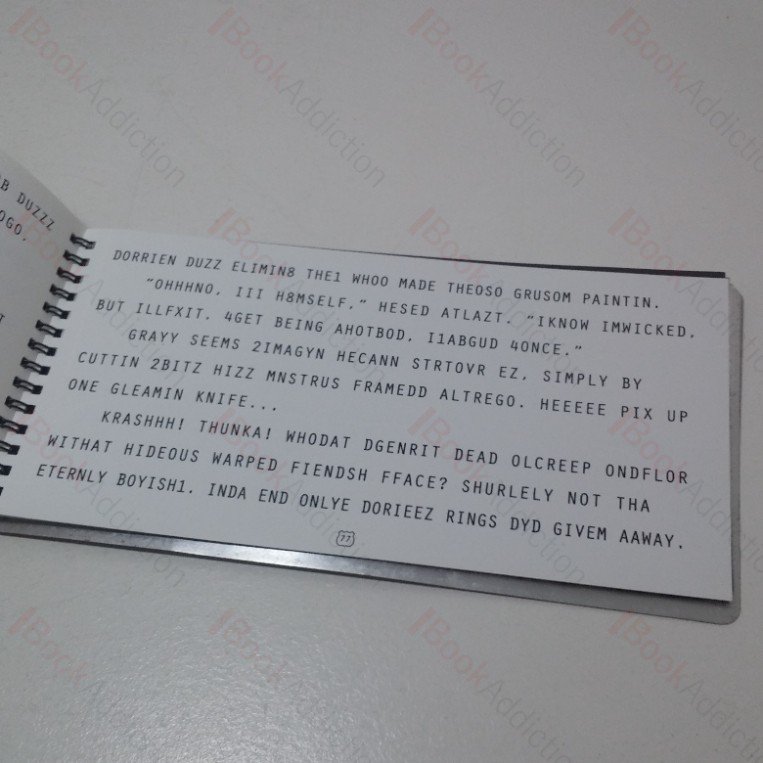 B DUZZZ
OGO.
DORRIEN DUZZ ELIMIN8 THE1 WHOO MADE THEOSO GRUSOM PAINTIN.
"OHHHNO, III H8MSELF," HESED ATLAZT. "IKNOW IMWICKED,
BUT ILLFXIT, 4GET BEING AHOTBOD, I1ABGUD 4ONCE."
GRAYY SEEMS 2IMAGYN HECANN STRTOVR EZ, SIMPLY BY
CUTTIN 2BITZ HIZZ MNSTRUS FRAMEDD ALTREGO. HEEEEE PIX UP
ONE GLEAMIN KNIFE...
KRASHHH! THUNKA! WHODAT DGENRIT DEAD OLCREEP ONDFLOR
WITHAT HIDEOUS WARPED FIENDSH FFACE? SHURLELY NOT THA
ETERNLY BOYISH1. INDA END ONLYE DORIEEZ RINGS DYD GIVEM AAWAY.
77
BookAddiction